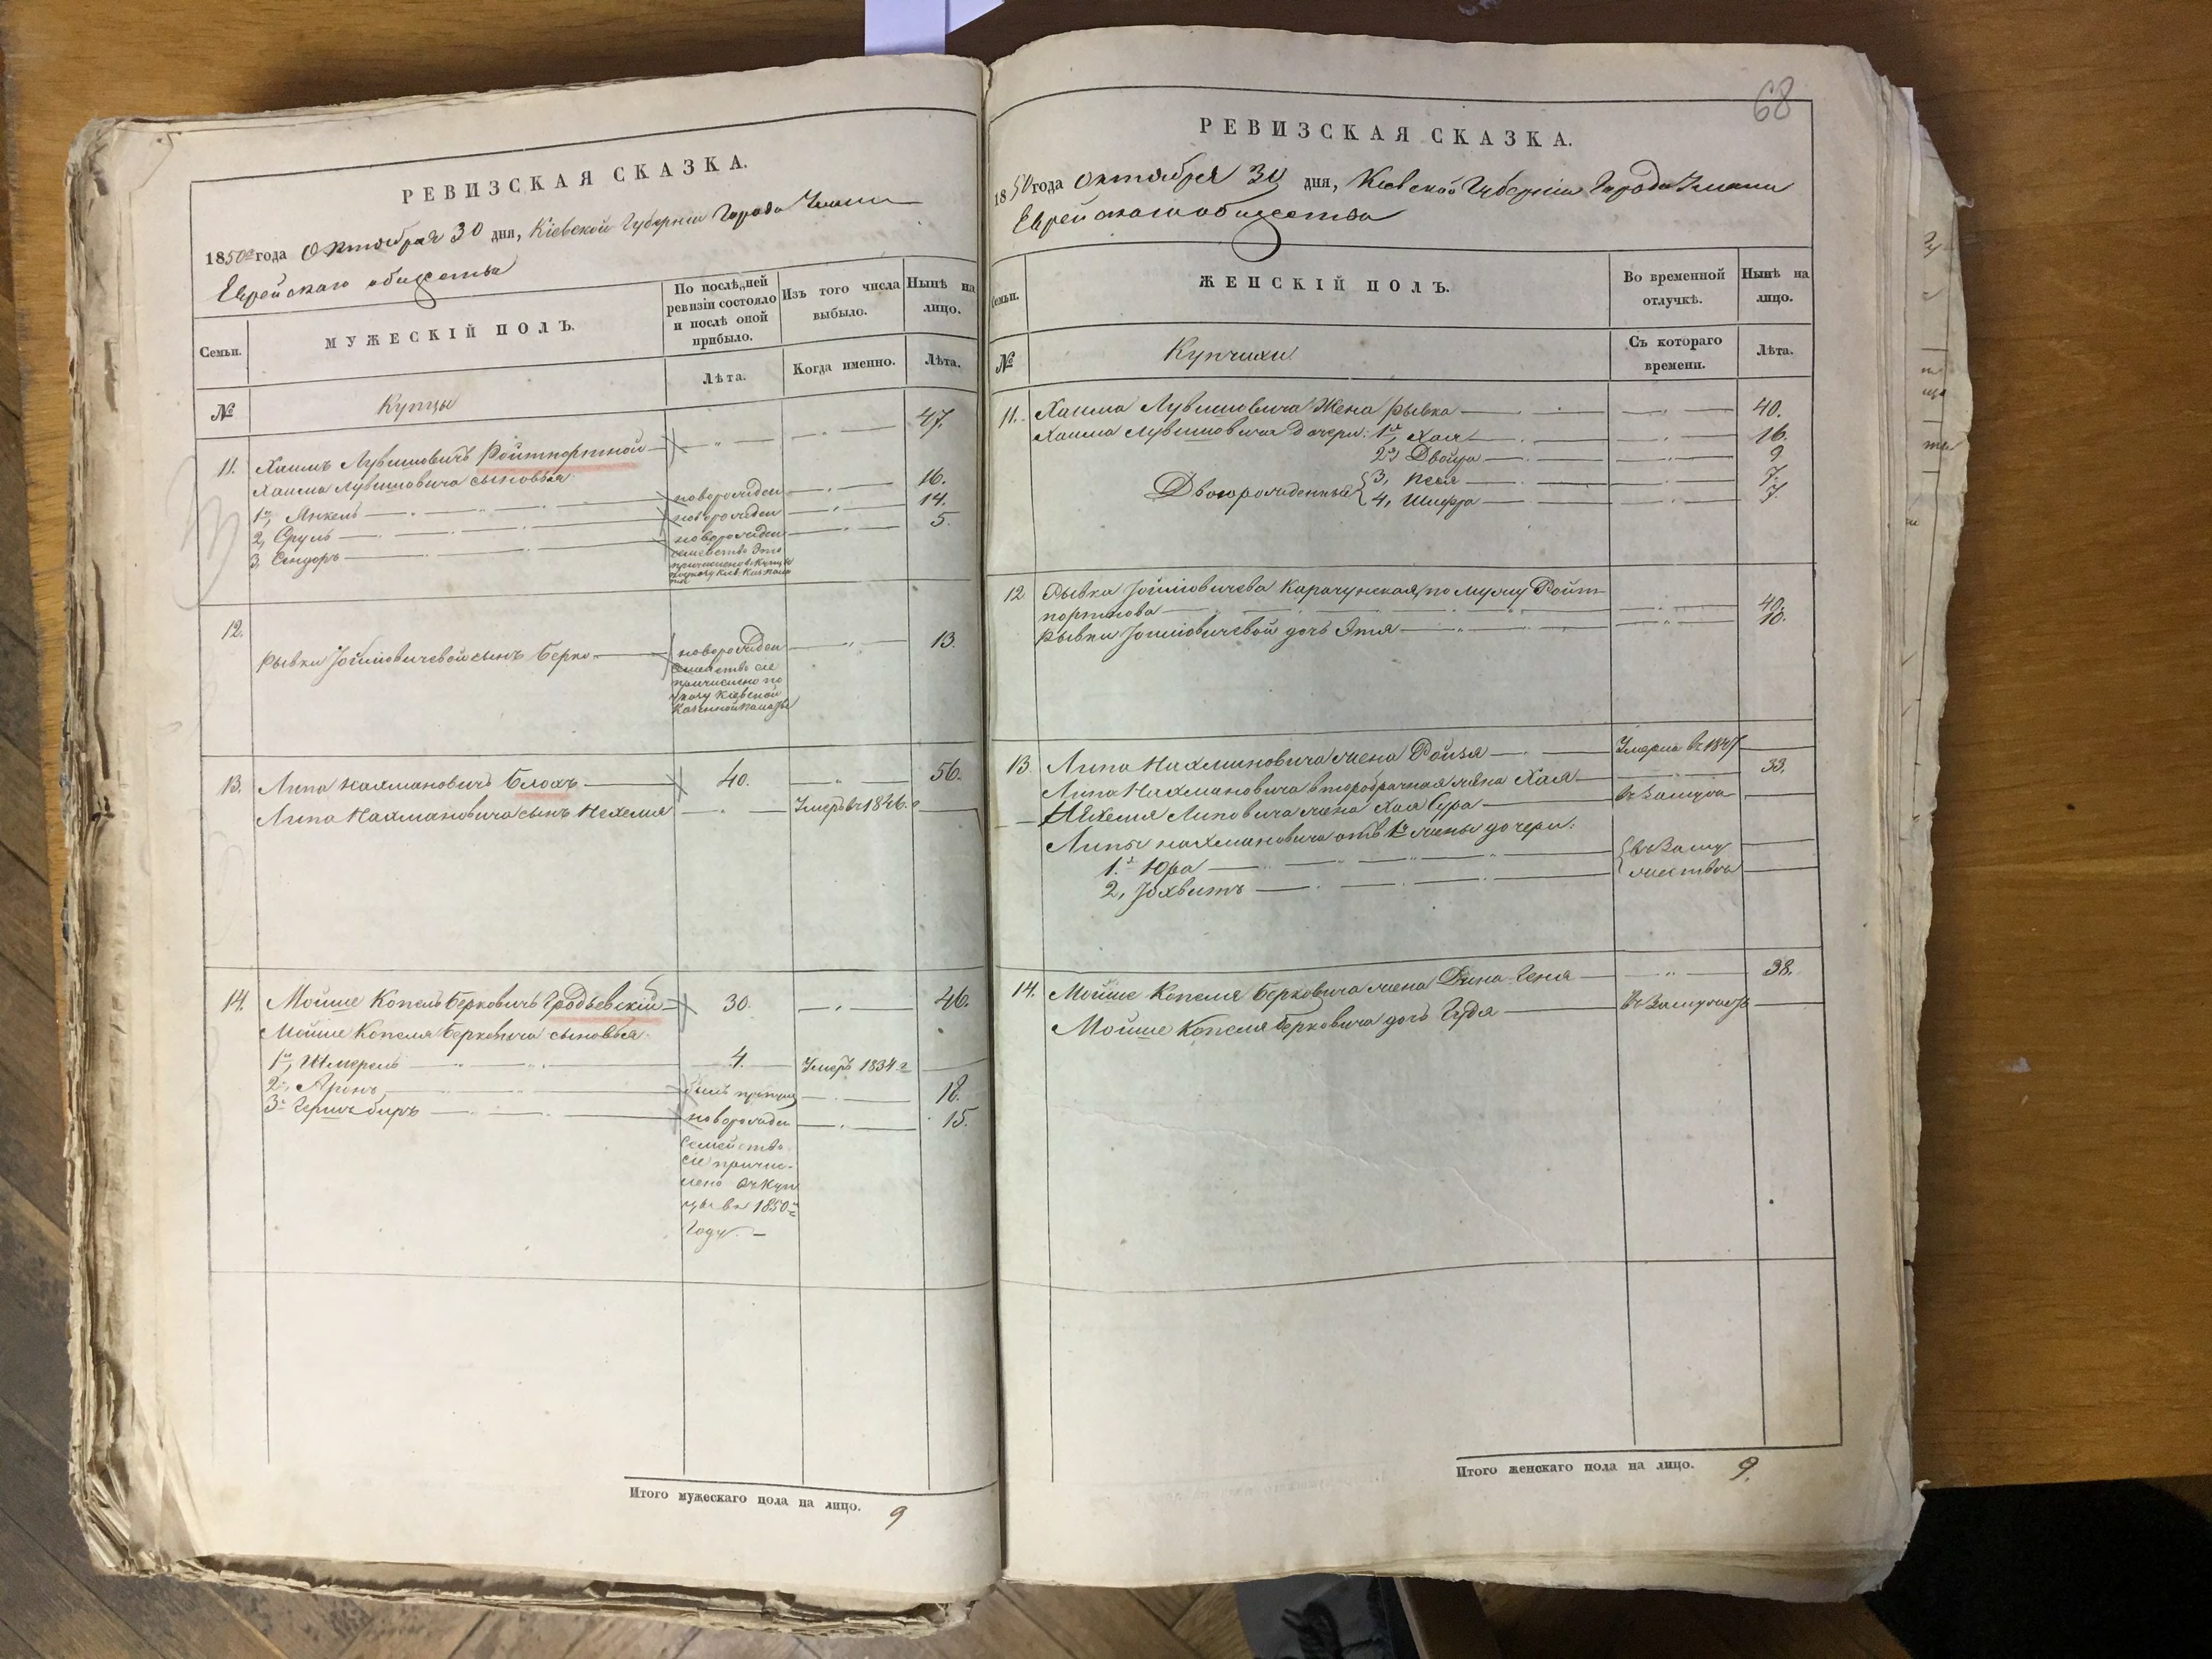 РЕВИЗСКАЯ СКАЗКА.
1850го года Октября 30 дня, Кіевской Губерніи Города Умани
Еврейскаго общества
Семьи.
МУЖЕСКІЙ ПОЛЪ.
По послѣдней ревизіи состояло и послѣ оной прибыло.
Изъ того числа выбыло.
Нынѣ на лицо.
№
Купцы
Лѣта.
Когда именно.
Лѣта.
11. Хаимъ Лувишовичъ Ройтпортной — " — — " — 47.
Хаима Лувишовича сыновья
1й, Янкель — новорожден — " — 16.
2, Сруль — новорожден — " — 14.
3, Сендоръ — новорожден — " — 5.
семейство это
12.
Рывки Іойлiовичевой сынъ Берко — новорожден — " — 13.
Семейство сіе
причислено по
указу Кіевской
Казенной палаты
13. Липа Нахмановичъ Блохъ — 40. — " — 56.
Липа Нахмановича сынъ Нехемия — " — Умеръ въ 1846.г —
14. Мойше Копель Берковичъ Гродзевскій — 30. — " — 46.
Мойше Копеля Берковича сыновья.
1й, Шмерель — 4. Умеръ 1834 г —
2й, Аронъ — былъ пропущ — " — 18.
3й Гершъ биръ — новорожден — " — 15.
Семейство
сіе причис-
лено въ куп
цы въ 1850м
Году. —
Итого мужескаго пола на лицо. 9
68
РЕВИЗСКАЯ СКАЗКА.
1850 года Октября 30 дня, Кіевской Губерніи Города Умани
Еврейскаго общества
Семьи.
ЖЕНСКІЙ ПОЛЪ.
Во временной отлучкѣ.
Нынѣ на лицо.
№
Купчихи
Съ котораго времени.
Лѣта.
11. Хаима Лувишовича Жена Рывка — " — 40.
Хаима Лувишовича дочери: 1я, Хая — " — 16.
2я, Двойра — " — 9
Двоюрожденные { 3, Песя — " — 7.
4, Шифра — " — 7.
12 Рывка Іойлiовичева Карачунская по мужу Ройт-
портнова — " — 40.
Рывки Іойлiовичевой дочь Этя — " — 10.
13 Липа Нахмановича жена Ройзя — Умерла въ 1847 —
Липа Нахмановича второбрачная жена Хая — " — 33.
Нехемия Липовича жена Хая Сура — въ Замуж —
Липы Нахмановича отъ 1й жены дочери:
1я Юра — { въ Заму
2, Іохвитъ — жества —
14. Мойше Копеля Берковича жена Дина Геня — " — 38.
Мойше Копеля Берковича дочь Гудя — въ Замужест —
Итого женскаго пола на лицо. 9.